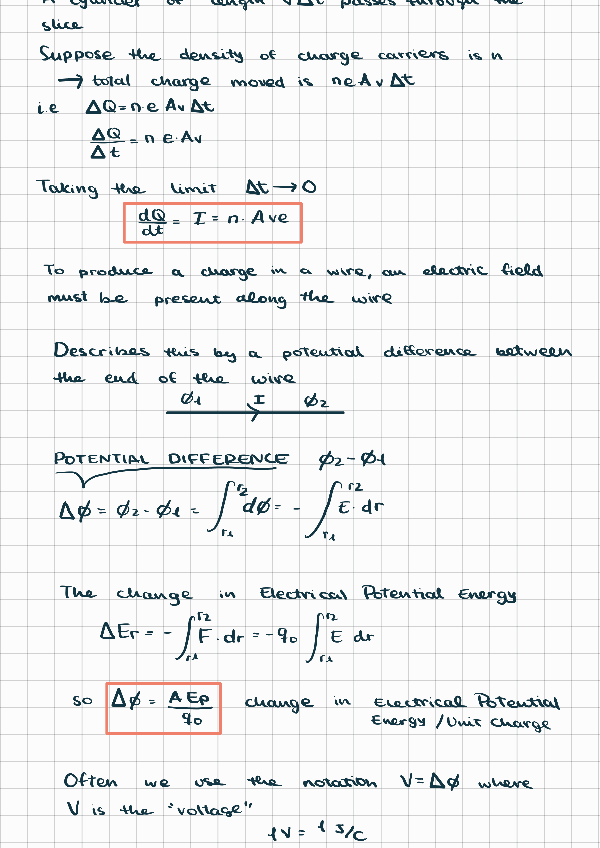 A cylinder of length vΔt passes through the
slice
Suppose the density of charge carriers is n
→ total charge moved is neAvΔt
i.e ΔQ = n·e AvΔt
ΔQ/Δt = n e·Av
Taking the limit Δt → 0
dQ/dt = I = n· Ave
To produce a charge in a wire, an electric field
must be present along the wire
Describes this by a potential difference between
the end of the wire
ϕ1 I ϕ2
POTENTIAL DIFFERENCE ϕ2 - ϕ1
Δϕ = ϕ2 - ϕ1 = ∫r1r2 dϕ = - ∫r1r2 E· dr
The change in Electrical Potential Energy
ΔEr = - ∫r1r2 F· dr = -q0 ∫r1r2 E dr
so Δϕ = AEp/q0 change in Electrical Potential
Energy /Unit Charge
Often we use the notation V = Δϕ where
V is the "voltage"
1V = 1 J/C